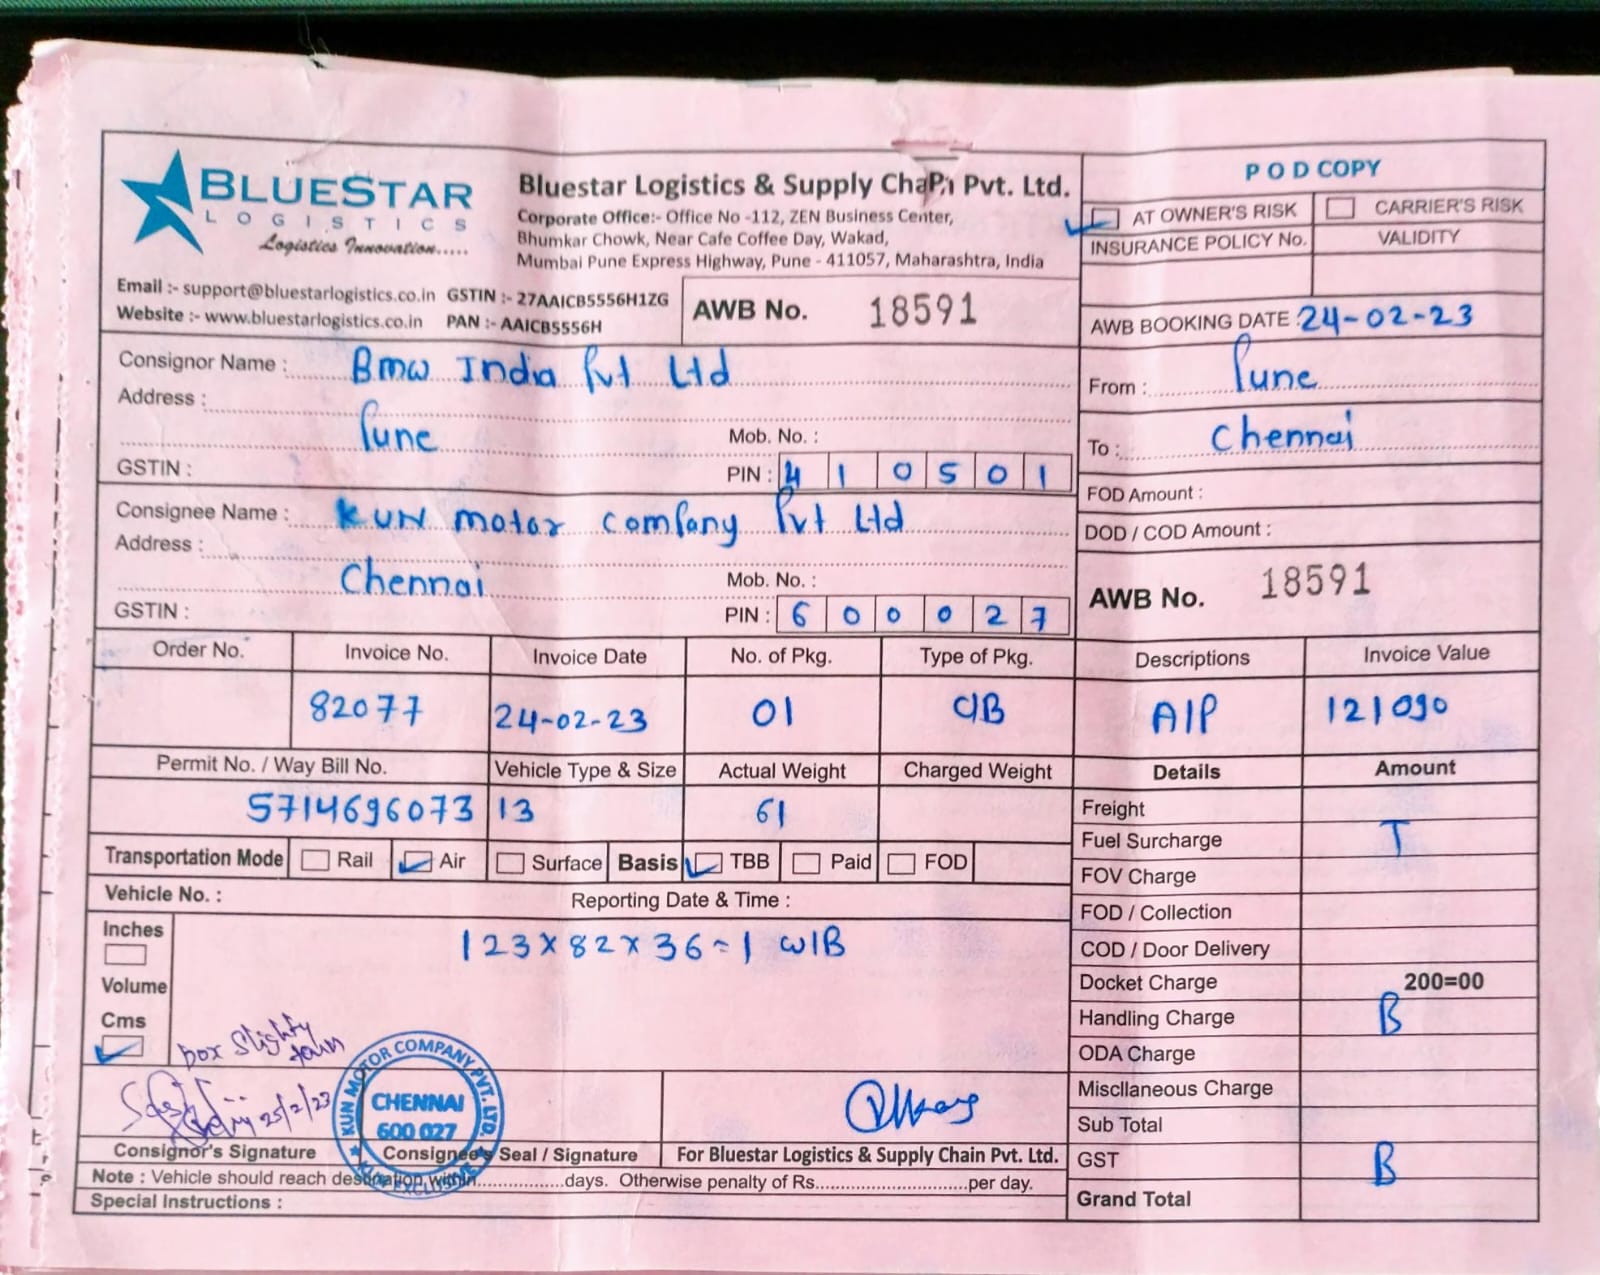 BLUESTAR
LOGISTICS
Logistics Innovation.....
Bluestar Logistics & Supply Chain Pvt. Ltd.
Corporate Office:- Office No -112, ZEN Business Center,
Bhumkar Chowk, Near Cafe Coffee Day, Wakad,
Mumbai Pune Express Highway, Pune - 411057, Maharashtra, India
Email :- support@bluestarlogistics.co.in GSTIN :- 27AAICB5556H1ZG
Website :- www.bluestarlogistics.co.in PAN :- AAICB5556H
AWB No. 18591
POD COPY
AT OWNER'S RISK CARRIER'S RISK
INSURANCE POLICY No. VALIDITY
AWB BOOKING DATE : 24-02-23
From : Pune
To : Chennai
FOD Amount :
DOD / COD Amount :
AWB No. 18591
Consignor Name : Bmw India Pvt Ltd
Address :
Pune Mob. No. :
GSTIN : PIN : 410501
Consignee Name : KUN motor company Pvt Ltd
Address :
Chennai Mob. No. :
GSTIN : PIN : 600027
Order No. Invoice No. Invoice Date No. of Pkg. Type of Pkg. Descriptions Invoice Value
82077 24-02-23 01 C/B A/P 121090
Permit No. / Way Bill No. Vehicle Type & Size Actual Weight Charged Weight
5714696073 13 61
Transportation Mode Rail Air Surface Basis TBB Paid FOD
Vehicle No. : Reporting Date & Time :
Inches
Volume
Cms
123x82x36=1 W/B
Details Amount
Freight
Fuel Surcharge T
FOV Charge
FOD / Collection
COD / Door Delivery
Docket Charge 200=00
Handling Charge B
ODA Charge
Miscllaneous Charge
Sub Total
GST B
Grand Total
Box Slightly
25/2/23
KUN MOTOR COMPANY PVT. LTD.
CHENNAI
600 027
KUN EXCLUSIVE
Consignor's Signature Consignee's Seal / Signature For Bluestar Logistics & Supply Chain Pvt. Ltd.
Note : Vehicle should reach destination within..................days. Otherwise penalty of Rs..............................per day.
Special Instructions :